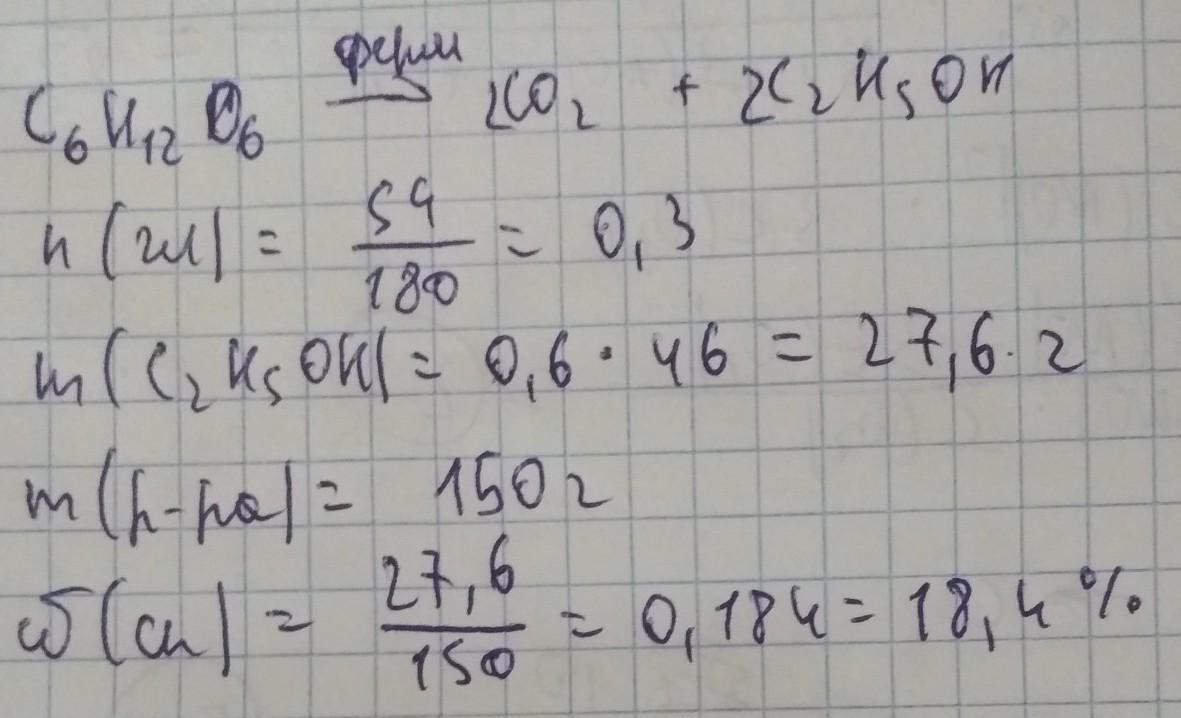 C₆H₁₂O₆ ферм → 2CO₂ + 2C₂H₅OH
n(гл) = 54/180 = 0,3
m(C₂H₅OH) = 0,6 · 46 = 27,6 г
m(р-ра) = 150 г
ω(сп) = 27,6/150 = 0,184 = 18,4 %